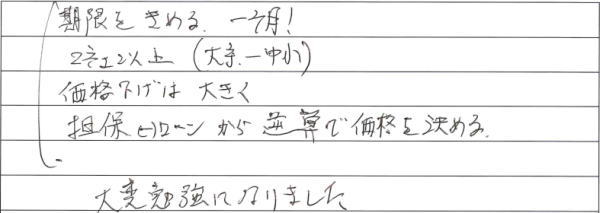 期限をきめる。一ヶ月!
2社以上（大手.―中小）
価格下げは 大きく
担保 ローン から 逆算で価格を決める。
大変勉強になりました